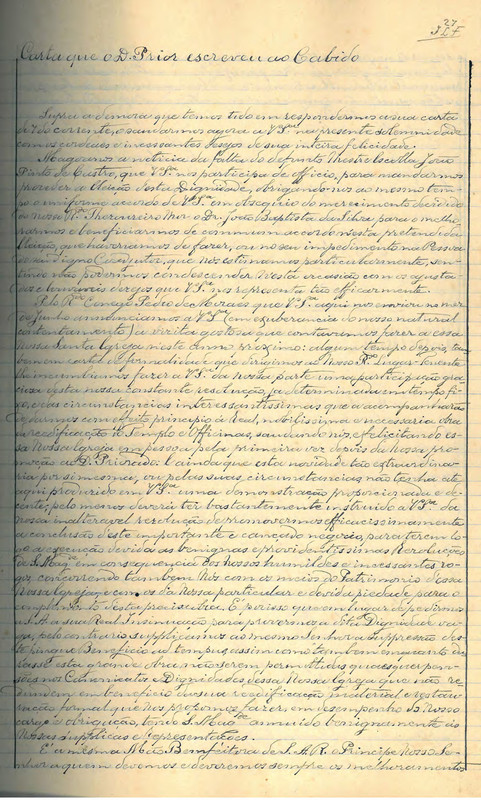 27
Carta que o D. Prior escreveu ao Cabido
Supra a demora que temos tido em respondermos a sua carta
de 7 do corrente, o saudarmos agora a VSª na presente solemnidade
com os cordeaes e incessantes dezejos de sua inteira felicidade.
Magoamos a noticia da falta do defunto Mestre Escolla João
Pinto de Castro, que VSª nos participa de officio, para mandarmos
proceder a eleição desta Dignidade, obrigando-nos ao mesmo tem-
po o uniforme acordo de VSª em obsequio do merecimento decidido
do nosso Rº Thezoureiro Mor o Dr. João Baptista da Silva para o melho-
rarmos e beneficiarmos de commum acordo nesta pretendida
Eleição, que haviamos de fazer, ou no seu impedimento na Pessoa
do seu digno Coadjutor, que nós estimamos particularmente, sen-
timos não podermos condescender nesta occasião com os ajusta-
dos e louvaveis dezejos que VSª nos reprezenta tão officiosamente.
Pelo Rdo Conego Pedro de Moraes que VSª aqui nos enviou no mez
de Junho annunciamos a VSª (em exuberancia do nosso natural
contentamento) a vizita gostosa que contavamos fazer a essa
nossa Santa Igreja neste Outono proximo: algum tempo depois, tam-
bem em carta de formalidade que dirigimos ao Nosso R. Lugar-Tenente
lhe incumbimos fazer a VSª da nossa parte uma participação gra-
ciosa desta nossa constante resolução, ja determinada em tempo fi-
xo, e das circumstancias interessantissimas que a acompanharão
de darmos com effeito principio á Real, nobilissima e necessaria Obra
da reedificação do Templo e Officinas, saudando-nos, e felicitando es-
sa Nossa Igreja em pessoa pela primeira vez depois da nossa pro-
moção ao D. Priorado. E ainda que esta novidade tão extraordina-
ria por si mesma, ou pelas suas circumstancias, não tenha até
aqui produzido em VSª uma demonstração proporcionada e de-
cente, pelo menos deveria ter bastantemente instruido a VSª da
nossa inalteravel rezolução de promovermos efficacissimamente
a conclusão deste importante e cançado negocio, para terem lo-
go a execução devida as benignas e providentissimas Rezoluções
de S. Mag.e em consequencia dos nossos humildes e incessantes ro-
gos, concorrendo tambem Nós com os meios do Patrimonio dessa
Nossa Igreja, e com os da Nossa particular e devida piedade para o
complemento desta precisa obra. E por isso que em lugar de pedirmos
a S. A. a sua Real Insinuação para provermos a dita Dignidade va-
ga, pelo contrario supplicamos ao mesmo Senhor a Suppressão des-
te pingue Beneficio ad tempus assim como tambem emquanto du-
rasse esta grande obra não serem permittidas quaesquer pen-
sões nos Canonicatos e Dignidades dessa Nossa Igreja que não re-
dundem em beneficio da sua reedificação material e restau-
ração formal que nos propomos fazer, em desempenho do Nosso
cargo e obrigação, tendo S. Mag.e annuido benignamente ás
Nossas supplicas e reprezentações.
É a mesma Mão Bemfeitora de S. A. R. o Principe Nosso Se-
nhor a quem devemos e deveremos sempre os melhoramentos